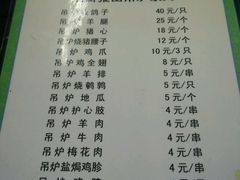 吊炉 鸽子 40 元/只
吊炉羊腿 25 元/个
吊炉猪心 18 元/个
吊炉烧猪腰子 12 元/个
吊炉鸡爪 10 元/3 只
吊炉鸡全翅 8 元/只
吊炉羊排 5 元/串
吊炉烧鹌鹑 5 元/只
吊炉地瓜 5 元/个
吊炉护心肉 4 元/串
吊炉羊肉 4 元/串
吊炉牛肉 4 元/串
吊炉梅花肉 4 元/串
吊炉盐焗鸡胗 4 元/串